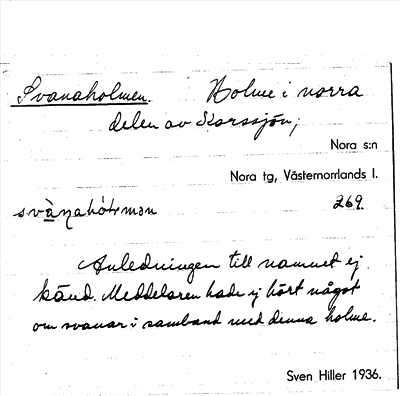 Svanaholmen. Holme i norra
delen av Storsjön;
Nora s:n
Nora tg, Västernorrlands l.
269.
Anledningen till namnet ej
känd. Meddelaren hade ej hört något
om svanar i samband med denna holme.
Sven Hiller 1936.